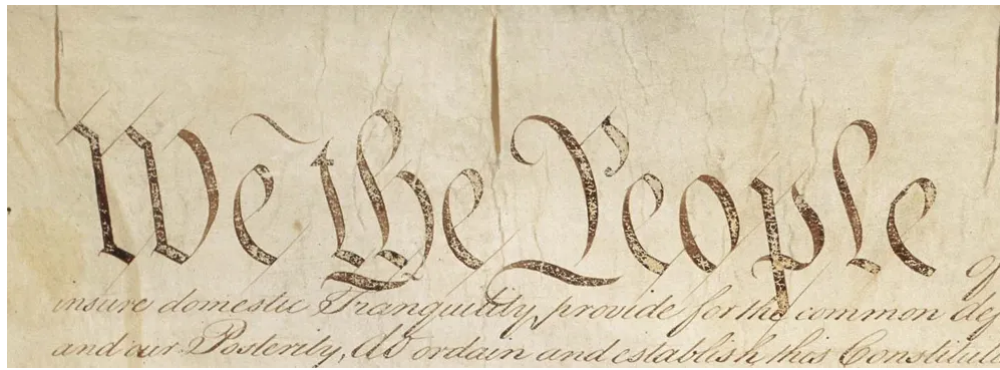 We the People
insure domestic Tranquility, provide for the common def
and our Posterity, do ordain and establish this Constituti